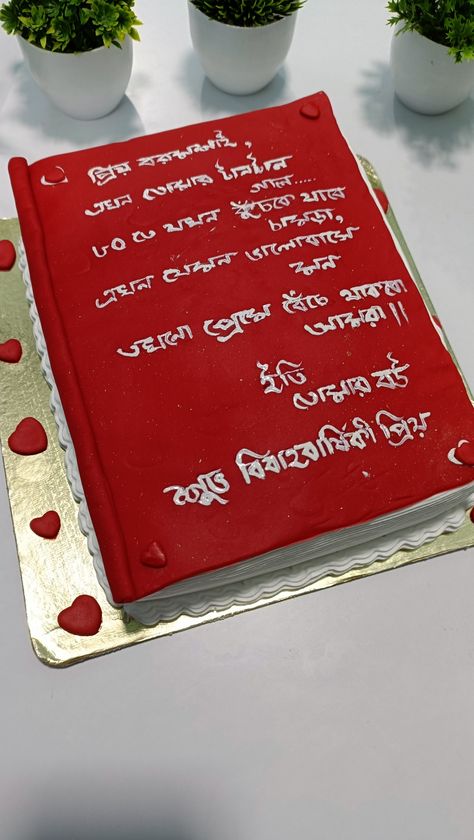 প্রিয় বরমশাই,
এখন তোমার টানটান
আল.....
৮০ তে যখন কুঁচকে যাবে
চামড়া,
এখন যেমন ভালোবাসে
মন
তখনো প্রেমে বেঁচে থাকবো
আমরা।।
ইতি
তোমার বউ
শুভ বিবাহবার্ষিকী প্রিয়